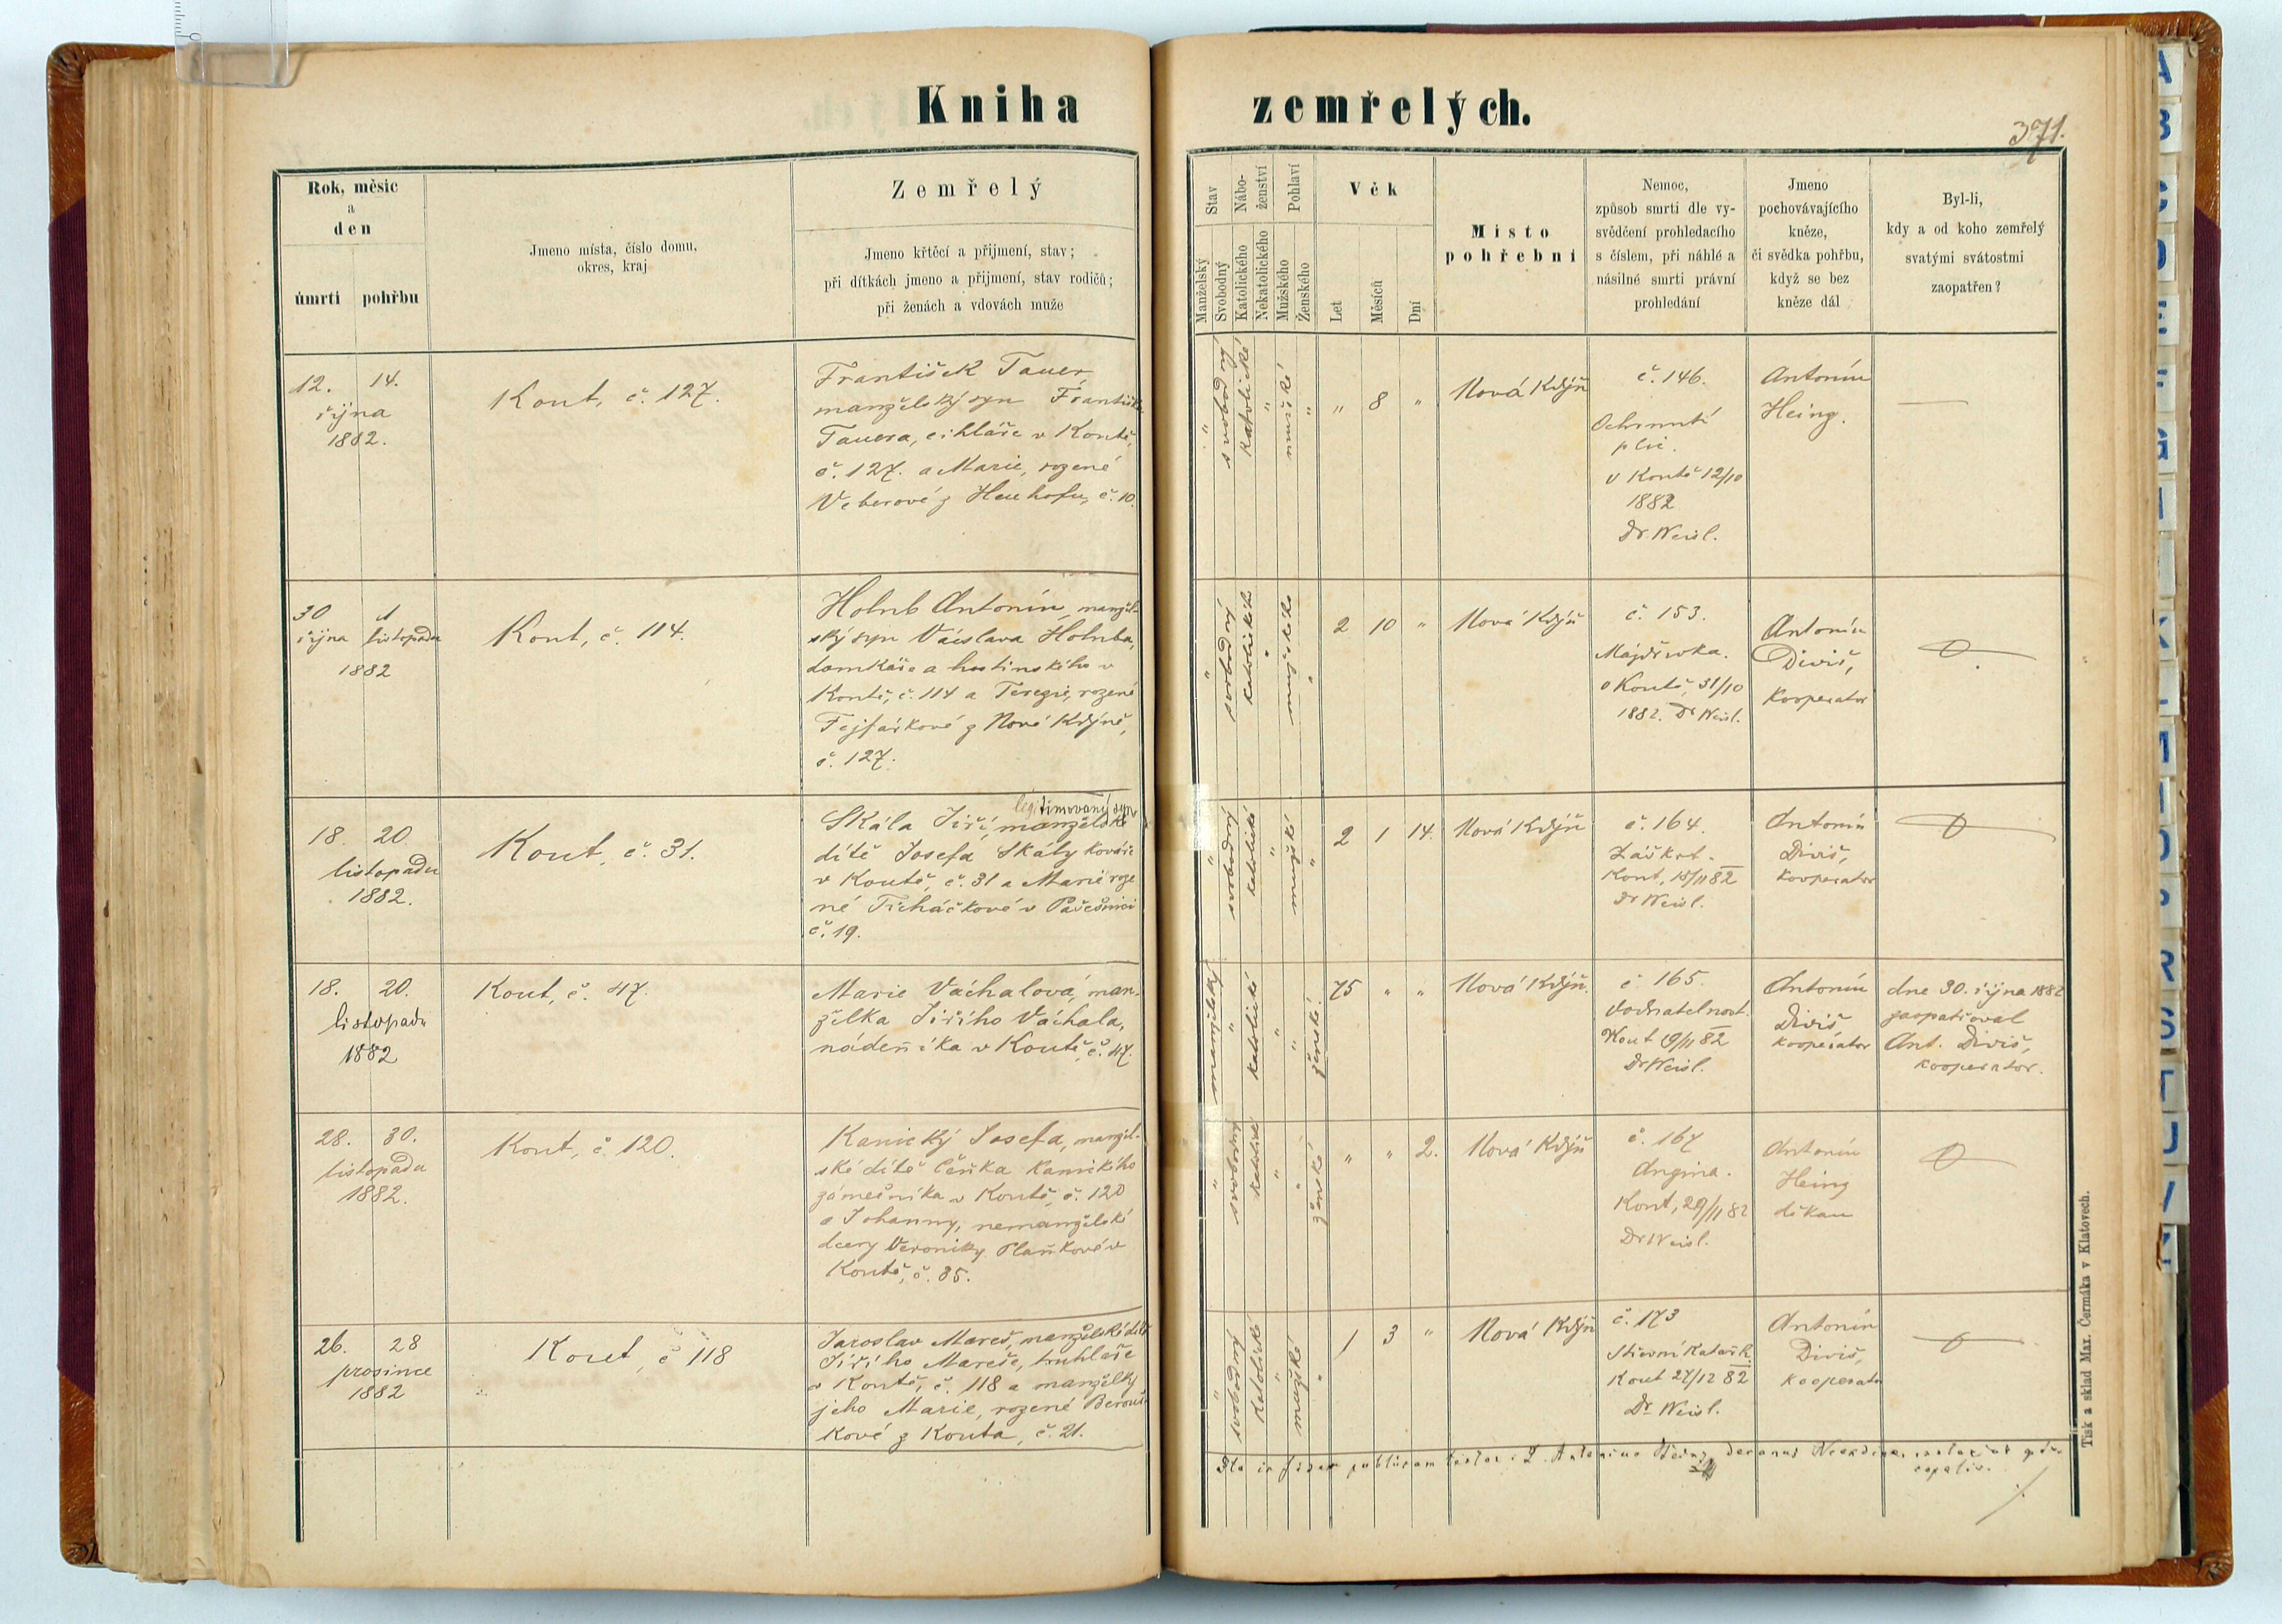 Kniha zemřelých.
371.
Rok, měsíc
a
den
úmrtí pohřbu
Jmeno místa, číslo domu,
okres, kraj
Zemřelý
Jmeno křtěcí a přijmení, stav;
při dítkách jmeno a přijmení, stav rodičů;
při ženách a vdovách muže
Stav
Manželský
Svobodný
Nábo-
ženství
Katolického
Nekatolického
Pohlaví
Mužského
Ženského
Věk
Let
Měsíců
Dní
Místo
pohřební
Nemoc,
způsob smrti dle vy-
svědčení prohledacího
s číslem, při náhlé a
násilné smrti právní
prohledání
Jmeno
pochovávajícího
kněze,
či svědka pohřbu,
když se bez
kněze dál
Byl-li,
kdy a od koho zemřelý
svatými svátostmi
zaopatřen?
12. 14.
října
1882.
Kout, č. 127.
František Tauer,
manželský syn Františka
Tauera, cihláře v Koutě,
č. 127. a Marie, rozené
Veberové z Heuhofu, č. 10.
" svobodný katolické " mužské "
" 8 "
Nová Kdýň
č. 146.
Ochrnutí
plic.
v Koutě 12/10
1882
Dr. Weisl.
Antonín
Heing.
—
30 1
října listopadu
1882
Kout, č. 114.
Holub Antonín, manžel-
ský syn Václava Holuba,
domkáře a hostinského v
Koutě, č. 114 a Terezie, rozené
Fejfarkové z Nové Kdýně,
č. 127.
" svobodný katolického " mužského "
2 10 "
Nová Kdýň
č. 153.
v Koutě, 31/10
1882. Dr Weisl.
Antonín
Diviš,
Kooperator
18. 20.
listopadu
1882.
Kout, č. 31.
legitimovaný syn
Skála Jiří, manželské
dítě Josefa Skály kováře
v Koutě, č. 31 a Marie roze
né Ticháčkové v Pačešnici
č. 19.
" svobodný katolické " mužské "
2 1 14.
Nová Kdýň
č. 164.
Záškrt.
Kout, 18/11 82
Dr Weisl.
Antonín
Diviš,
kooperator
18. 20.
listopadu
1882
Kout, č. 47.
Marie Váchalová, man-
želka Jiřího Váchala,
nádeníka v Koutě, č. 47.
manželský " katolické " " ženské
75 " "
Nová Kdýň.
č 165.
Vodnatelnost.
Kout 19/11 82
Dr Weisl.
Antonín
Diviš
kooperátor
dne 30. října 1882
zaopatřoval
Ant. Diviš,
kooperator.
28. 30.
listopadu
1882.
Kout, č. 120.
Kanický Josefa, manžel-
ské dítě Čeňka Kanického
zámečníka v Koutě, č. 120
a Johanny, nemanželské
dcery Veroniky Plaňkové v
Koutě, č. 85.
" svobodný katolické " " ženské
" " 2.
Nová Kdýň
č. 167
Angina.
Kout, 29/11 82
Dr Weisl.
Antonín
Heing
děkan
26. 28
prosince
1882
Kout, č 118
Jaroslav Mareš, manželské dítě
Jiřího Mareše, truhláře
v Koutě, č. 118 a manželky
jeho Marie, rozené Berouš-
kové z Kouta, č. 21.
" svobodný katolické " mužské "
1 3 "
Nová Kdýň
č. 173
Střevní katarh.
Kout 27/12 82
Dr Weisl.
Antonín
Diviš,
kooperator
publicam Antonius Heing decanus
Tisk a sklad Max. Čermáka v Klatovech.
A
B
C
D
E
F
G
I
K
L
M
O
P
R
S
T
U
V